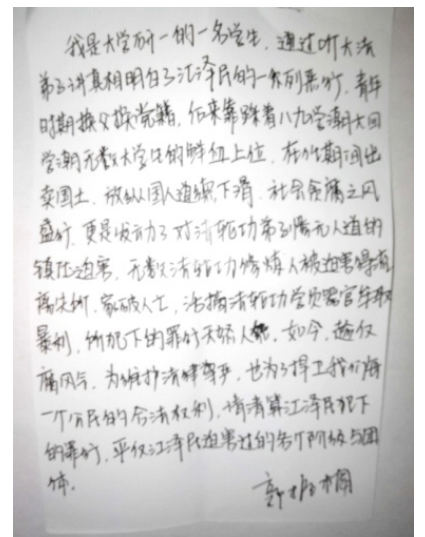 我是大学研一的一名学生，通过听大法
弟子讲真相明白了江泽民的一系列恶行，青年
时期换父换党籍，后来靠踩着八九学潮大
学潮无数大学生的鲜血上位，在位期间出
卖国土，放纵国人道德下滑，社会贪腐之风
盛行，更是发动了对法轮功弟子惨无人道的
镇压迫害，无数法轮功修炼人被迫害得流
离失所，家破人亡，活摘法轮功学员器官牟取
暴利，所犯下的罪行天怒人怨，如今，趁反
腐风气，为维护法律尊严，也为了捍卫我们每
一个公民的合法权利，请清算江泽民犯下
的罪行，平反江泽民迫害过的各个阶级与团
体。